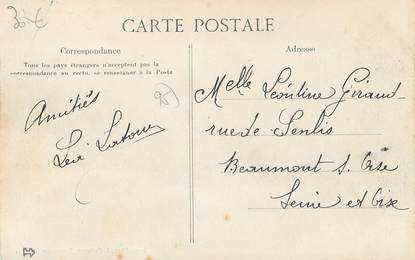 30 €
CARTE POSTALE
Correspondance
Tous les pays étrangers n'acceptent pas la
correspondance au recto, se renseigner à la Poste
Adresse
95
Amitiés
Latour
Melle Léontine Giraud
rue de Senlis
Beaumont s. Oise
Seine et Oise